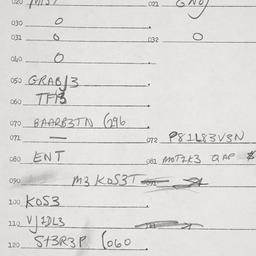 020 021
030 0
031 0 032 0
040 0
050 GRABJ3
060 TF13
070 BAARB3TN (296
071 — 072 P81L83V3N
080 ENT 081 MOT2K3 QAP $
090 M3 KOS3T
100 KOS3
110 VJ2DL3
120 ST3R3P (060